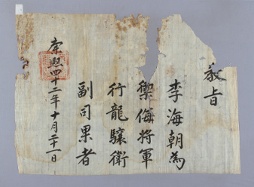 敎旨
李海朝爲
禦侮將軍
行龍驤衛
副司果者
康熙四十二年十月二十一日